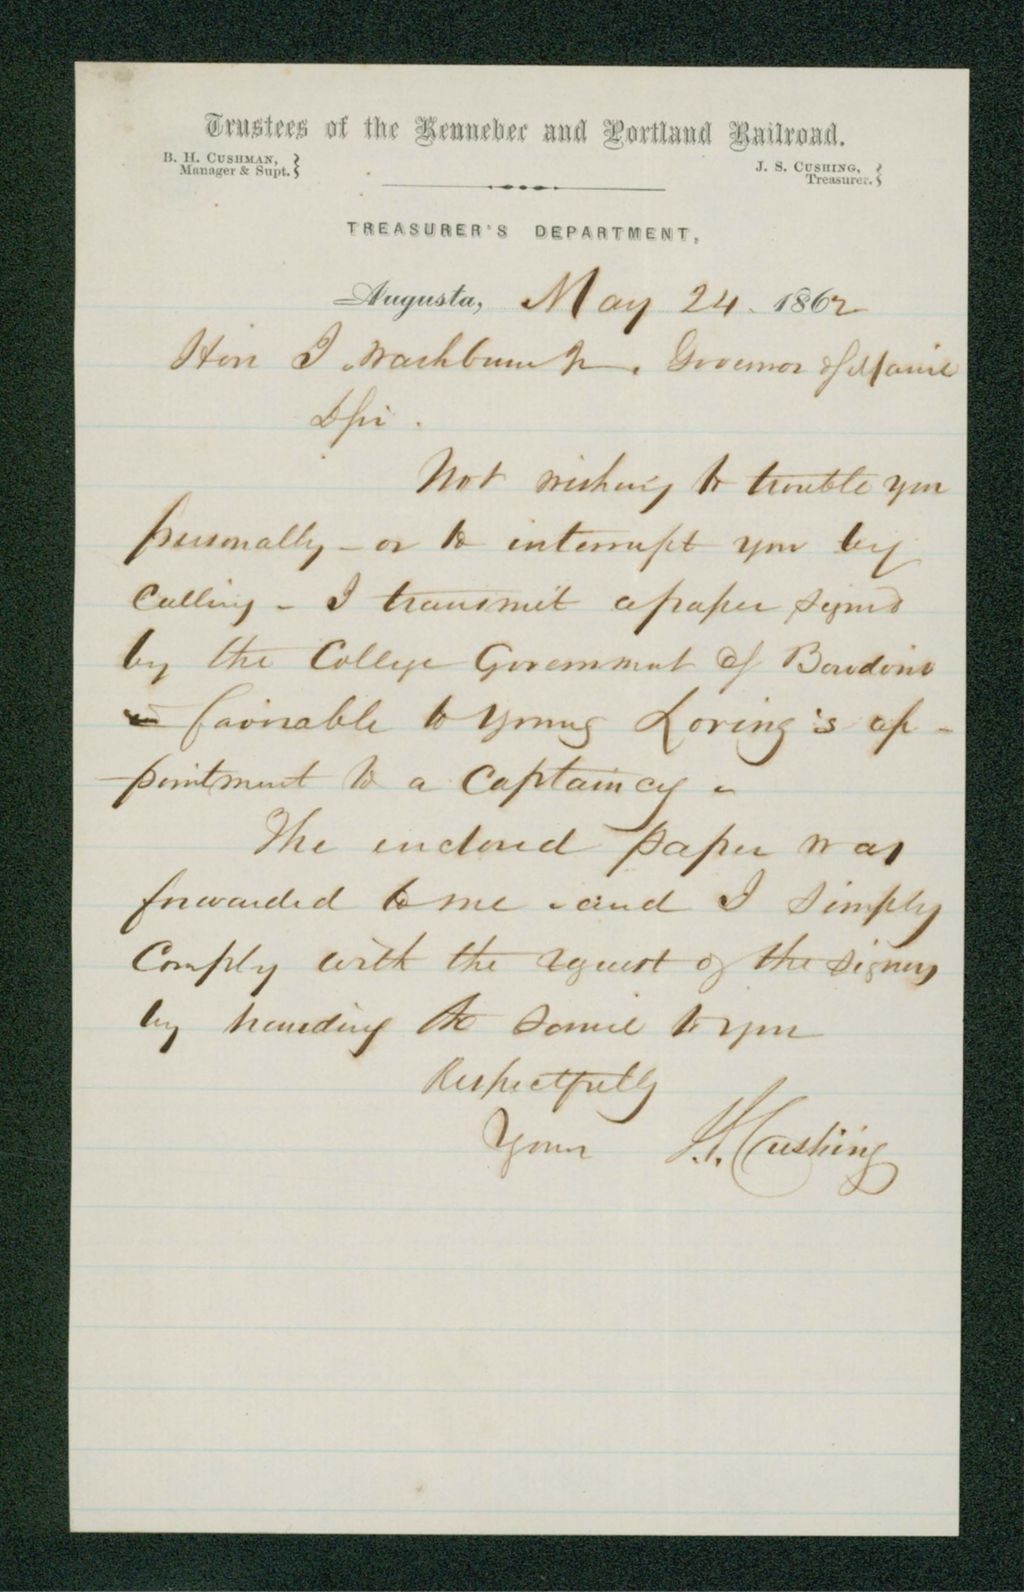 Trustees of the Kennebec and Portland Railroad.
B. H. CUSHMAN,
Manager & Supt.
J. S. CUSHING,
Treasurer.
TREASURER'S DEPARTMENT,
Augusta, May 24. 1862
Hon I. Washburn Jr. Governor of Maine
D Sir.
Not wishing to trouble you
personally - or to interrupt you by
calling - I transmit a paper signed
by the College Government of Bowdoin
favorable to young Loring's ap-
pointment to a Captaincy -
The enclosed paper was
forwarded to me - and I simply
comply with the request of the signers
by handing the same to you
Respectfully
Yours J. S. Cushing